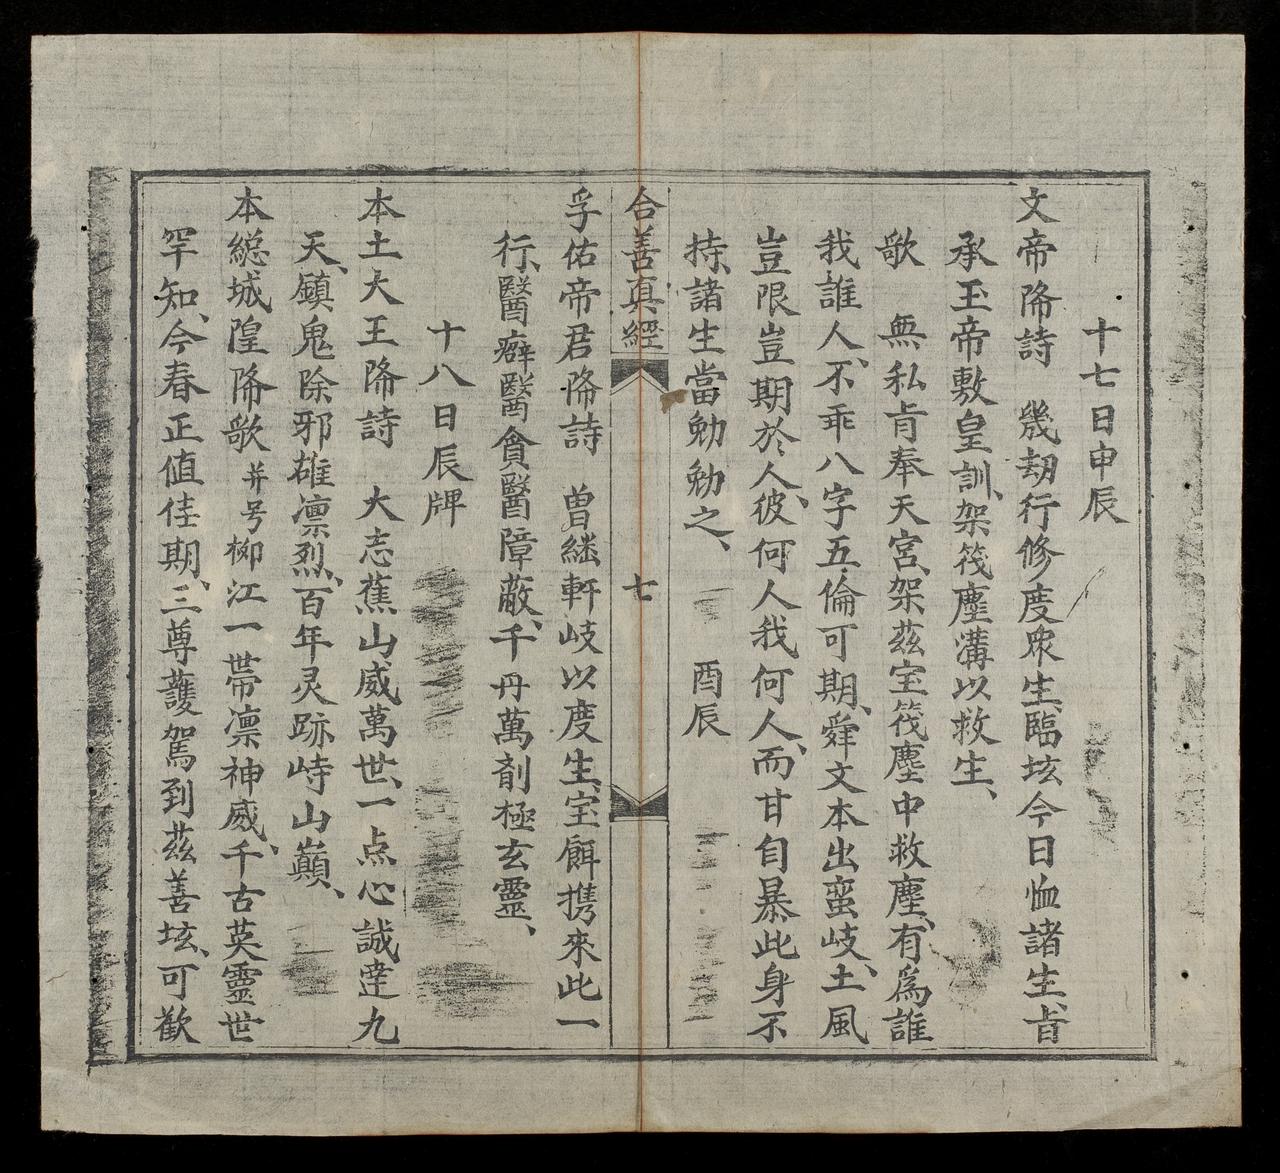 十七日申辰
文帝降詩　幾刼行修度衆生、臨坛今日恤諸生、旨
承玉帝敷皇訓、架筏塵溝以救生、
歌　無私旨奉天宮、架茲宝筏塵中救塵、有爲誰
我誰人、不乖八字五倫可期、舜文本出蛮岐、土風
豈限豈期於人、彼何人我何人、而甘自暴此身不
持、諸生當勉勉之、　酉辰
合善真經　七
孚佑帝君降詩　曽繼軒岐以度生、宝餌携來此一
行、醫癖醫貪醫障蔽、千丹萬劑極玄靈、
十八日辰牌
本土大王降詩　大志蕉山威萬世、一点心誠達九
天、鎮鬼除邪雄凛烈、百年灵跡峙山巔、
本総城隍降歌并号　柳江一帶凛神威、千古英靈世
罕知、今春正值佳期、三尊護駕到茲善坛、可歡